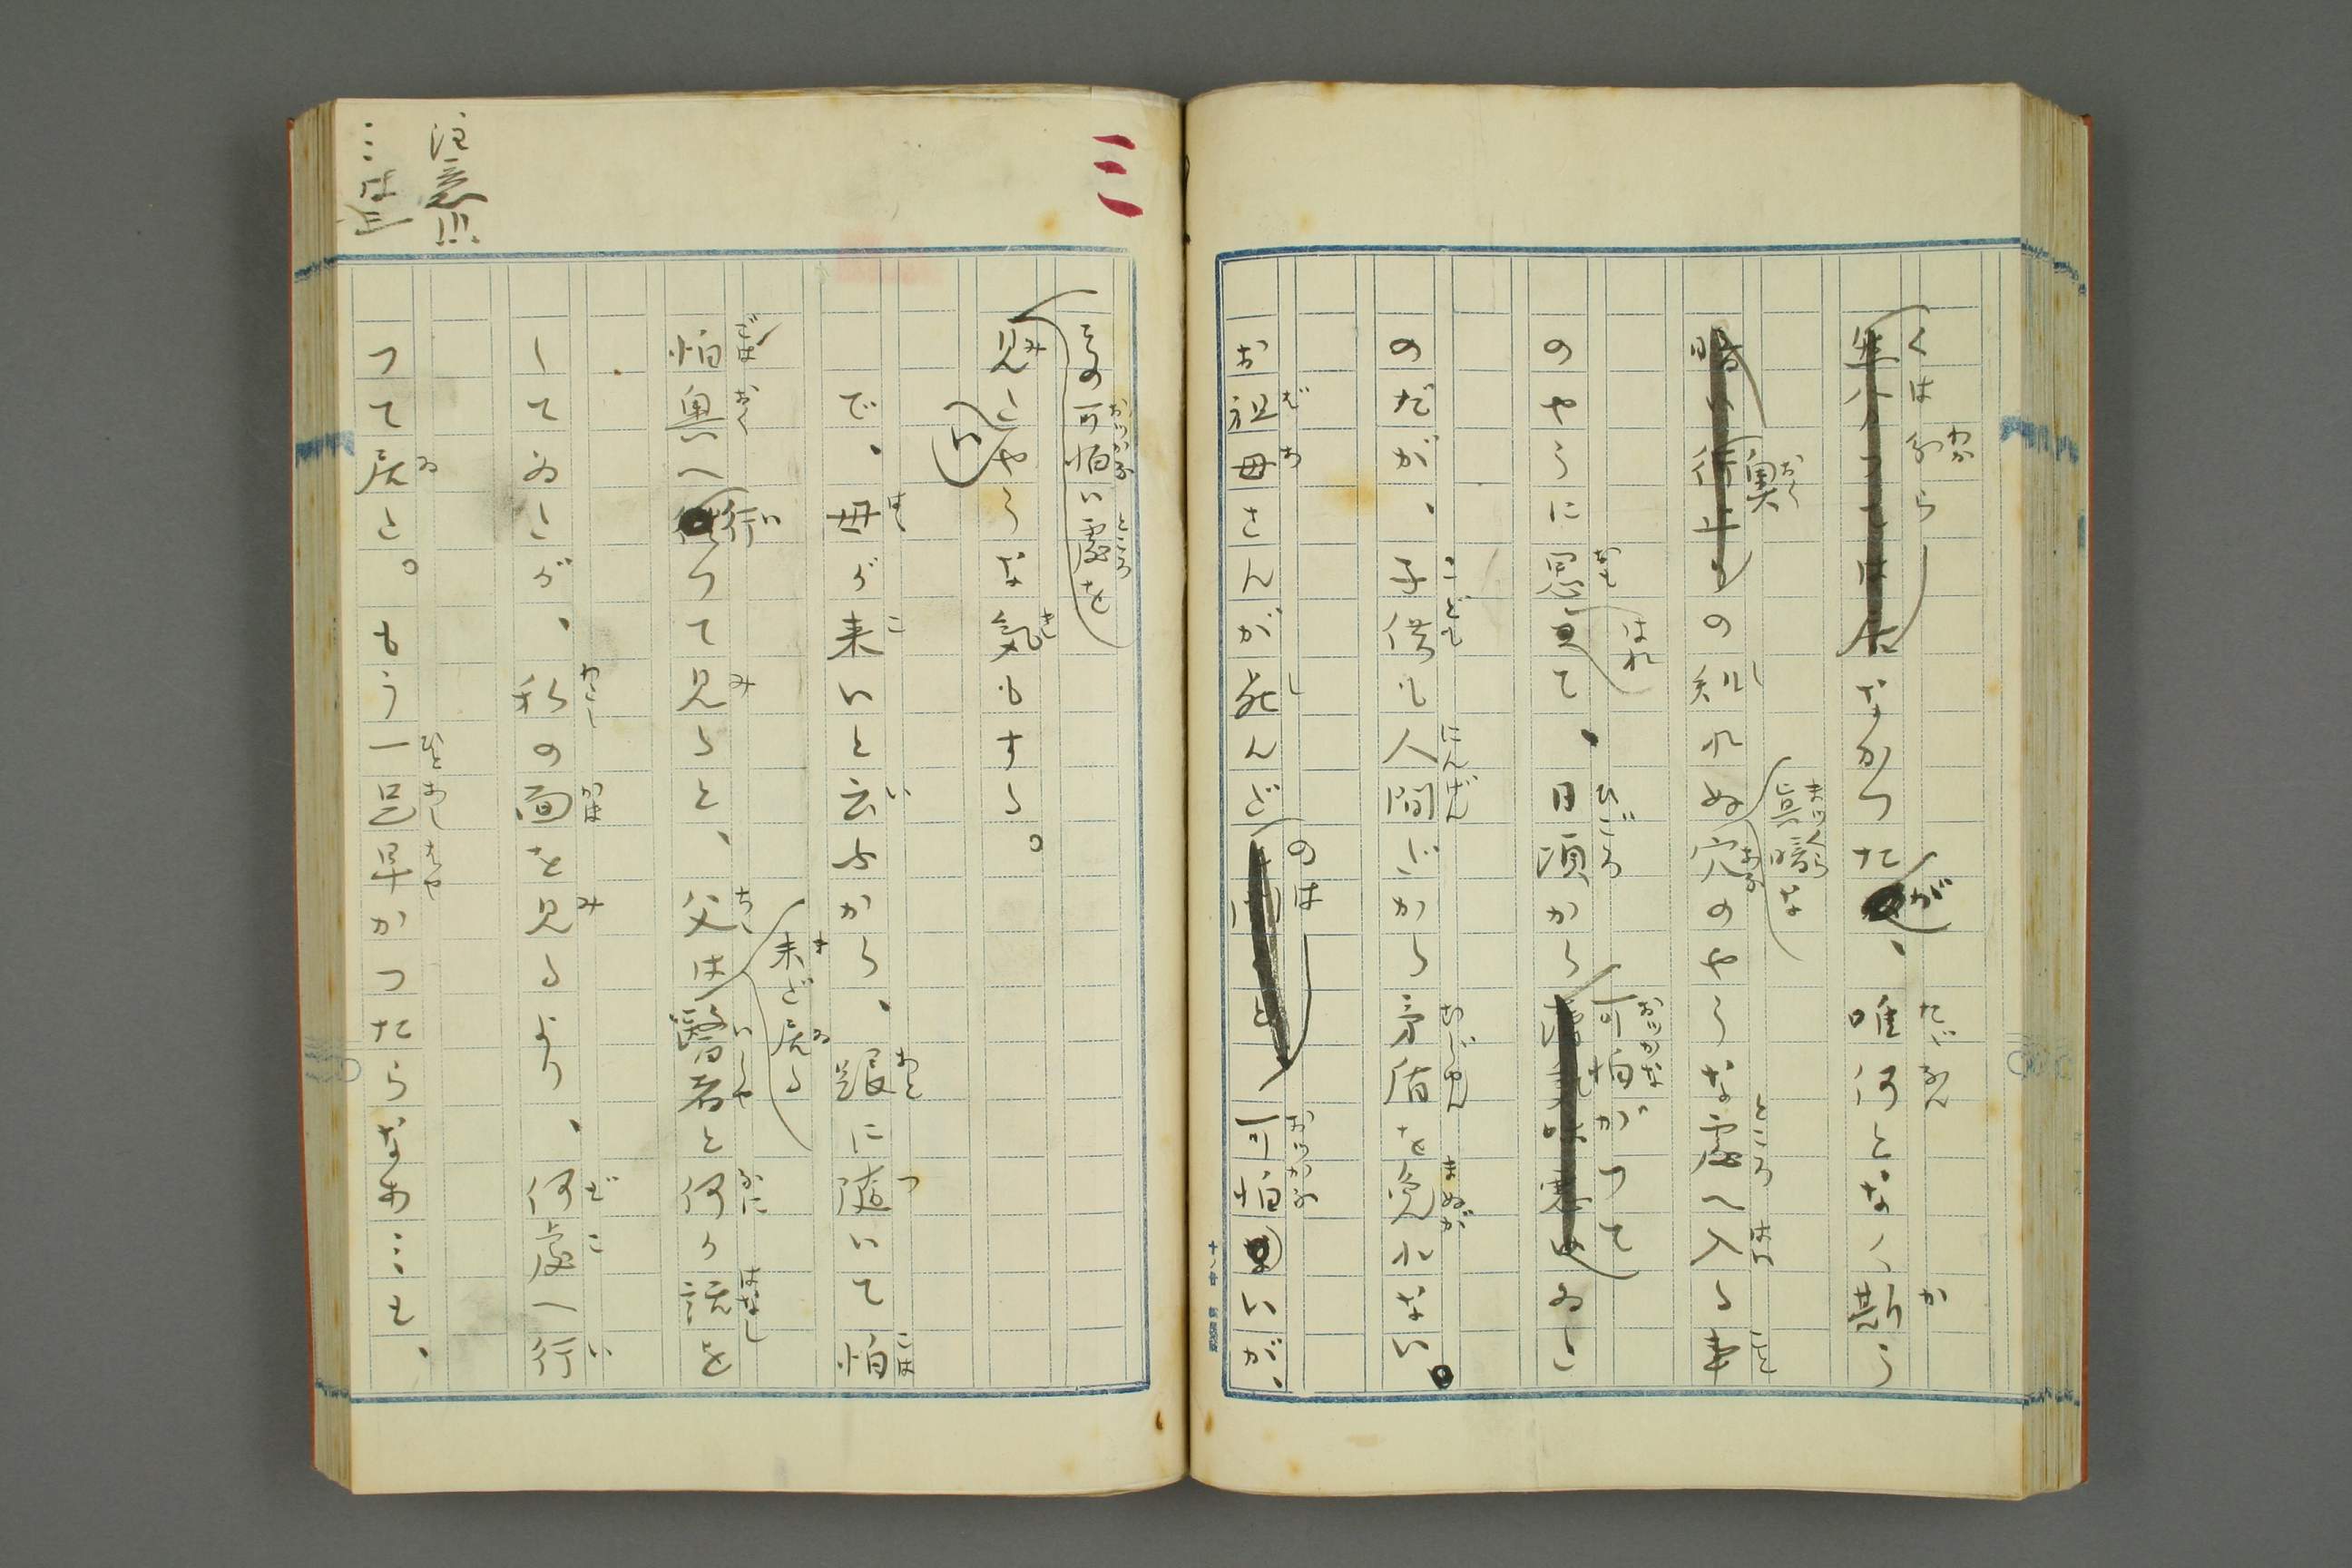 くは分らなかつたが、唯何となく斯う
奥の知れぬ真暗な穴のやうな處へ入る事
のやうに思はれて、日頃から可怕がつてゐた
のだが、子供も人間だから矛盾を免れない。
お祖母さんが死んだのは可怕いが、
その可怕い處を
見たいやうな気もする。
で、母が来いと云ふから、跟に随いて怕
怕奥へ行つて見ると、父は未だ居る醫者と何か話を
してゐたが、私の面を見るより、何處へ行
つて居た。もう一足早かつたらなあ…と、
三
注意!!!